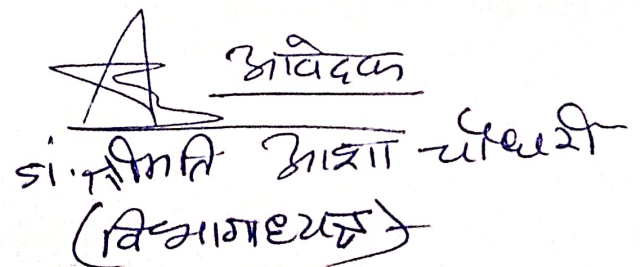 आवेदक
डॉ. श्रीमति आशा चौधरी
(विभागाध्यक्ष)